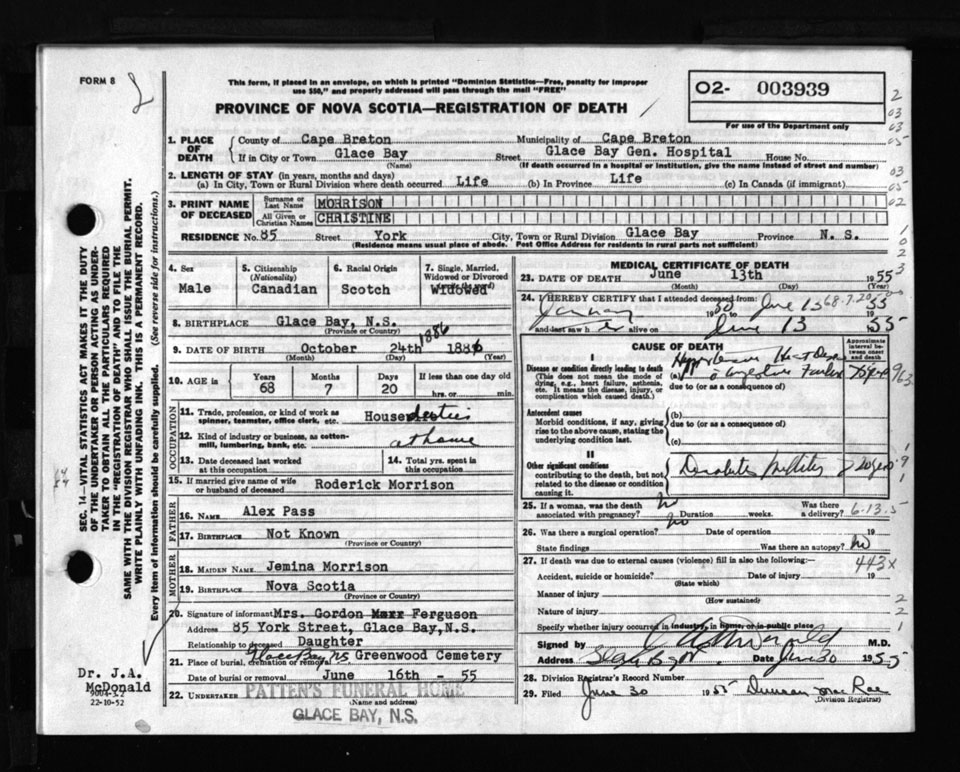 FORM 8
This form, if placed in an envelope, on which is printed "Dominion Statistics—Free, penalty for improper
use $50," and properly addressed will pass through the mail "FREE"
PROVINCE OF NOVA SCOTIA—REGISTRATION OF DEATH
02- 003939
For use of the Department only
1. PLACE OF DEATH
County of Cape Breton Municipality of Cape Breton
If in City or Town Glace Bay Street Glace Bay Gen. Hospital House No.
(Name) (If death occurred in a hospital or institution, give the name instead of street and number)
2. LENGTH OF STAY (in years, months and days)
(a) In City, Town or Rural Division where death occurred Life (b) In Province Life (c) In Canada (if immigrant)
3. PRINT NAME OF DECEASED
Surname or Last Name MORRISON
All Given or Christian Names CHRISTINE
RESIDENCE No. 85 Street York City, Town or Rural Division Glace Bay Province N. S.
(Residence means usual place of abode. Post Office Address for residents in rural parts not sufficient)
4. Sex
Male
5. Citizenship (Nationality)
Canadian
6. Racial Origin
Scotch
7. Single, Married, Widowed or Divorced
Widowed
8. BIRTHPLACE Glace Bay, N.S.
(Province or Country)
1886
9. DATE OF BIRTH October 24th 1886
(Month) (Day) (Year)
10. AGE in Years 68 Months 7 Days 20 If less than one day old hrs. or min.
OCCUPATION
11. Trade, profession, or kind of work as spinner, teamster, office clerk, etc. House duties
12. Kind of industry or business, as cotton-mill, lumbering, bank, etc. at home
13. Date deceased last worked at this occupation
14. Total yrs. spent in this occupation
15. If married give name of wife or husband of deceased Roderick Morrison
FATHER
16. NAME Alex Pass
17. BIRTHPLACE Not Known
(Province or Country)
MOTHER
18. MAIDEN NAME Jemina Morrison
19. BIRTHPLACE Nova Scotia
(Province or Country)
20. Signature of informant Mrs. Gordon Ferguson
Address 85 York Street, Glace Bay, N.S.
Relationship to deceased Daughter
21. Place of burial, cremation or removal Glace Bay NS Greenwood Cemetery
Date of burial or removal June 16th - 55
22. UNDERTAKER PATTEN'S FUNERAL HOME
(Name and address)
GLACE BAY, N.S.
MEDICAL CERTIFICATE OF DEATH
23. DATE OF DEATH June 13th 1955
(Month) (Day) (Year)
24. I HEREBY CERTIFY that I attended deceased from:
January 1950 June 13 68-7-20 55
and last saw her alive on June 13 1955
CAUSE OF DEATH
Approximate interval between onset and death
I
Disease or condition directly leading to death
(This does not mean the mode of dying, e.g., heart failure, asthenia, etc. It means the disease, injury, or complication which caused death.)
(a)
Failure
due to (or as a consequence of)
Antecedent causes
Morbid conditions, if any, giving rise to the above cause, stating the underlying condition last.
(b)
due to (or as a consequence of)
(c)
II
Other significant conditions
contributing to the death, but not related to the disease or condition causing it.
25. If a woman, was the death associated with pregnancy? no Duration weeks. Was there a delivery? 6-13-5
26. Was there a surgical operation? no Date of operation 19
State findings Was there an autopsy? No
27. If death was due to external causes (violence) fill in also the following:— 443X
Accident, suicide or homicide? Date of injury 19
(State which)
Manner of injury
(How sustained)
Nature of injury
Specify whether injury occurred in industry, in home, or in public place
Signed by M.D.
Address Glace Bay Date June 30 1955
28. Division Registrar's Record Number
29. Filed June 30 1955 Duncan MacRae
(Division Registrar)
SEC. 14—VITAL STATISTICS ACT MAKES IT THE DUTY
OF THE UNDERTAKER OR PERSON ACTING AS UNDERTAKER
TO OBTAIN ALL THE PARTICULARS REQUIRED
IN THE "REGISTRATION OF DEATH" AND TO FILE THE
SAME WITH THE DIVISION REGISTRAR WHO SHALL ISSUE THE BURIAL PERMIT.
WRITE PLAINLY WITH UNFADING INK. THIS IS A PERMANENT RECORD.
Every item of information should be carefully supplied. (See reverse side for instructions.)
Dr. J.A.
McDonald
22-10-52